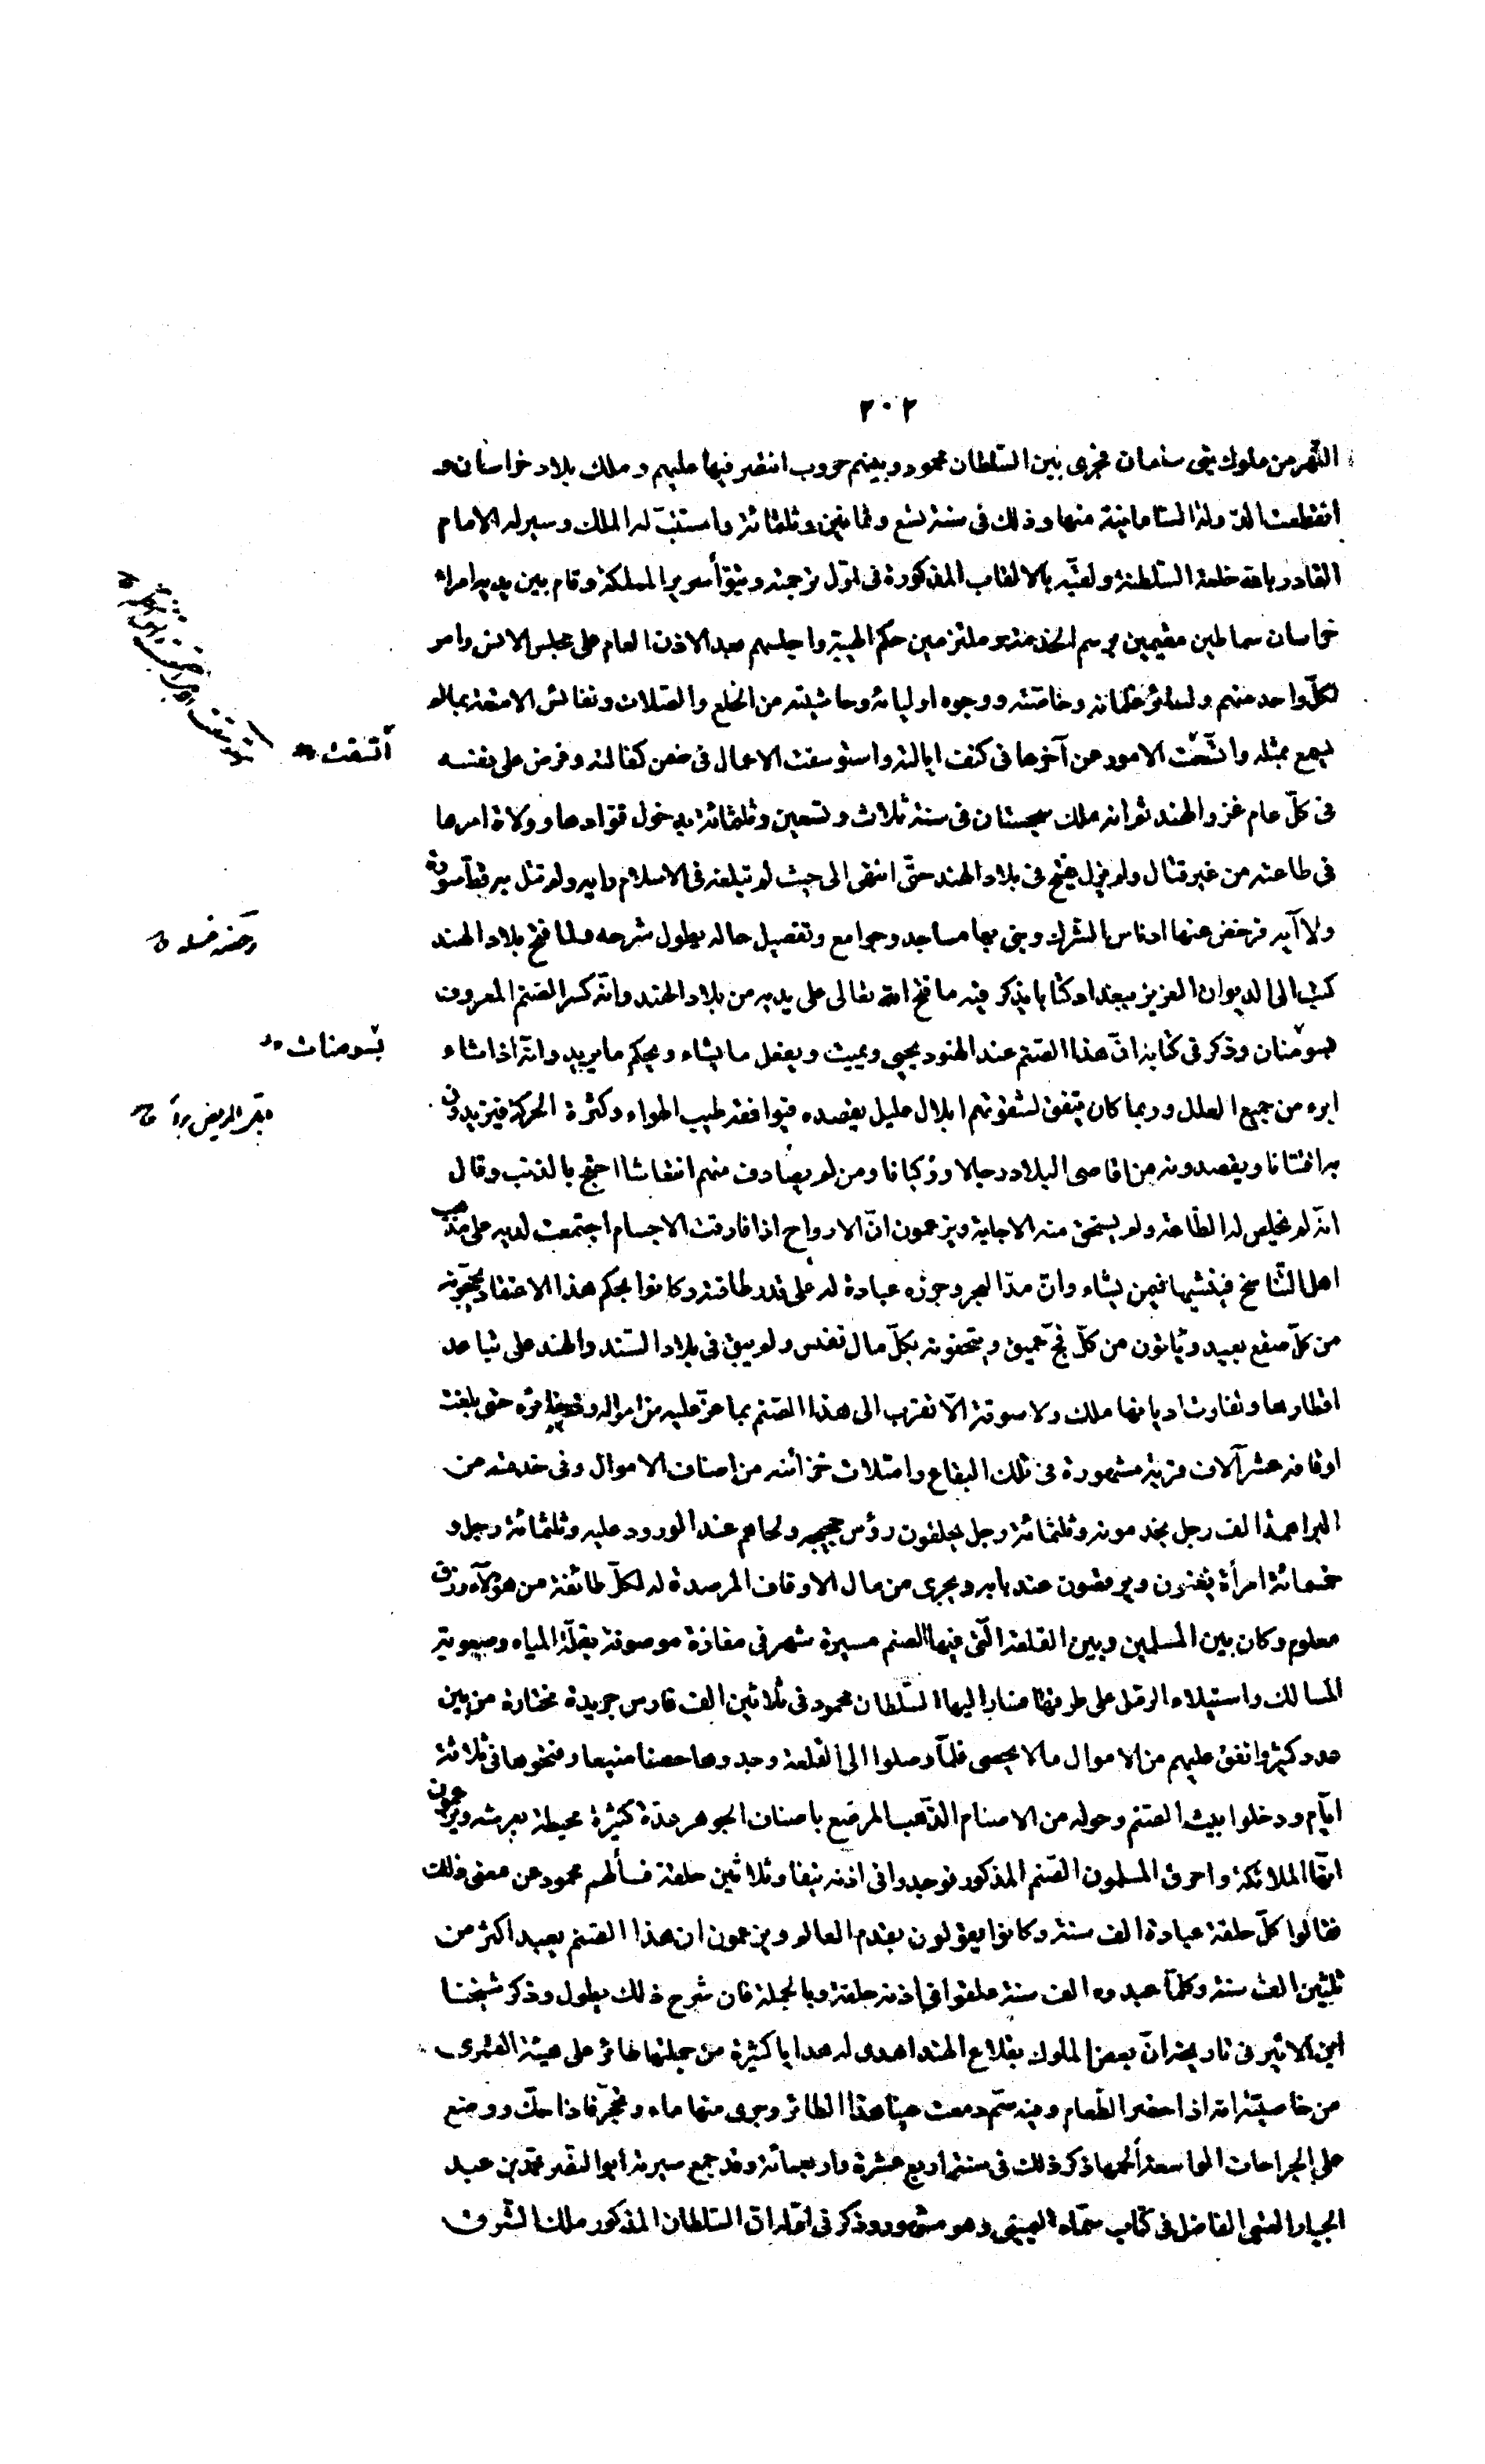 ٢٠٢
النهر من ملوك بنى سامان فجرى بين السّلطان محمود وبينهم حروب انتصر فيها عليهم وملك بلاد خراسان و
انقطعت الدّولة السّامانيّة منها وذلك فى سنة تسع وثمانين وثلثمائة واستتبّ له الملك وسير له الامام
القادر بالله خلعة السّلطنة ولقّبه بالالقاب المذكورة فى اوّل ترجمته وتبوّأ سرير المملكة وقام بين يديه امراء
خراسان سماطين مقيمين برسم الخدمة وملتزمين حكم الهيبة واجلسهم بعد الاذن العام على مجلس الانس وامر
لكلّ واحد منهم ولسائر غلمانه وخاصّته ووجوه اوليائه وحاشيته من الخلع والصّلات ونفائس الامتعة بما لم
يسمع بمثله واتّسقت الامور عن آخرها فى كنف ايالته واستوسقت الاعمال فى ضمن كفالته وفرض على نفسه
اتسقت
فى كلّ عام غزو الهند ثم انه ملك سجستان فى سنة ثلاث وتسعين وثلثمائة بدخول قوّادها وولاة امرها
فى طاعته من غير قتال ولم يزل يفتح فى بلاد الهند حتّى انتهى الى حيث لم تبلغه فى الاسلام راية ولم تتل به قطّ سورة
ولا آية فرحض عنها ادناس الشرك وبنى بها مساجد وجوامع وتفصيل حاله يطول شرحه ولما فتح بلاد الهند
رحضه غسله
كتب الى الديوان العزيز ببغداد كتابا يذكر فيه ما فتح الله تعالى على يديه من بلاد الهند وانّه كسر الصّنم المعروف
بسومنات وذكر فى كتابه انّ هذا الصّنم عند الهنود يحيى ويميت ويفعل ما يشاء ويحكم ما يريد وانّه اذا شاء
بسومنات
ابرء من جميع العلل وربما كان يتفق لشقوتهم ابلال عليل يقصده فيوافقه طيب الهواء وكثرة الحركة فيزيدون
به افتتانا ويقصدونه من اقاصى البلاد رجالا وركبانا ومن لم يصادف منهم انتعاشا احتج بالذنب وقال
انّه لم يخلص له الطّاعة ولم يستحق منه الاجابة ويزعمون انّ الارواح اذا فارقت الاجسام اجتمعت لديه على مذهب
اهل التّناسخ فينشيها فيمن يشاء وانّ مدّ البحر وجزره عبادة له على قدر طاقته وكانوا بحكم هذا الاعتقاد يحجّونه
من كلّ صقع بعيد ويأتون من كلّ فجّ عميق ويتحفونه بكلّ مال نفيس ولم يبق فى بلاد السّند والهند على تباعد
اقطارها وتفاوت اديانها ملك ولا سوقة الاّ تقرب الى هذا الصّنم بما عزّ عليه من امواله وذخائره حتى بلغت
اوقافه عشر آلاف قرية مشهورة فى تلك البقاع وامتلات خزائنه من اصناف الاموال وفى خدمته من
البراهمة الف رجل يخدمونه وثلثمائة رجل يحلقون رؤس حجيجه ولحاهم عند الورود عليه وثلثمائة رجل و
خمسمائة امرأة يغنون ويرقصون عند بابه ويجرى من مال الاوقاف المرصدة له لكلّ طائفة من هؤلآء رزق
معلوم وكان بين المسلمين وبين القلعة الّتى فيها الصنم مسيرة شهر فى مفازة موصوفة بقلّة المياه وصعوبة
المسالك واستيلاء الرمل على طرقها فسار اليها السّلطان محمود فى ثلاثين الف فارس جريدة مختارة من بين
عدد كثير وانفق عليهم من الاموال مالا يحصى فلمّا وصلوا الى القلعة وجدوها حصنا منيعا وفتحوها فى ثلاثة
ايّام ودخلوا بيت الصّنم وحوله من الاصنام الذّهب المرصّع باصناف الجوهر عدّة كثيرة محيطة بعرشه ويزعمون
انّها الملائكة واحرق المسلمون الصّنم المذكور فوجدوا فى اذنه نيفا وثلاثين حلقة فسألهم محمود عن معنى ذلك
فقالوا كلّ حلقة عبادة الف سنة وكانوا يقولون بقدم العالم ويزعمون ان هذا الصّنم يعبد اكثر من
ثلثين الف سنة وكلّما عبدوه الف سنة علقوا فى اذنه حلقة وبالجملة فان شرح ذلك يطول وذكر شيخنا
ابن الاثير فى تاريخه انّ بعض الملوك بقلاع الهند اهدى له هدايا كثيرة من جملتها طائر على هيئة القمرى
من خاصيّته انه اذا حضر الطّعام وفيه سمّ دمعت عينا هذا الطائر وجرى منها ماء وتحجّر فاذا حكّ ووضع
على الجراحات الواسعة ألحمها ذكر ذلك فى سنة اربع عشرة واربعمائة وقد جمع سيرته ابو النّصر محمّد بن عبد
الجبار العتبى الفاضل فى كتاب سمّاه اليمينى وهو مشهور وذكر فى اوّله انّ السّلطان المذكور ملك الشّرق